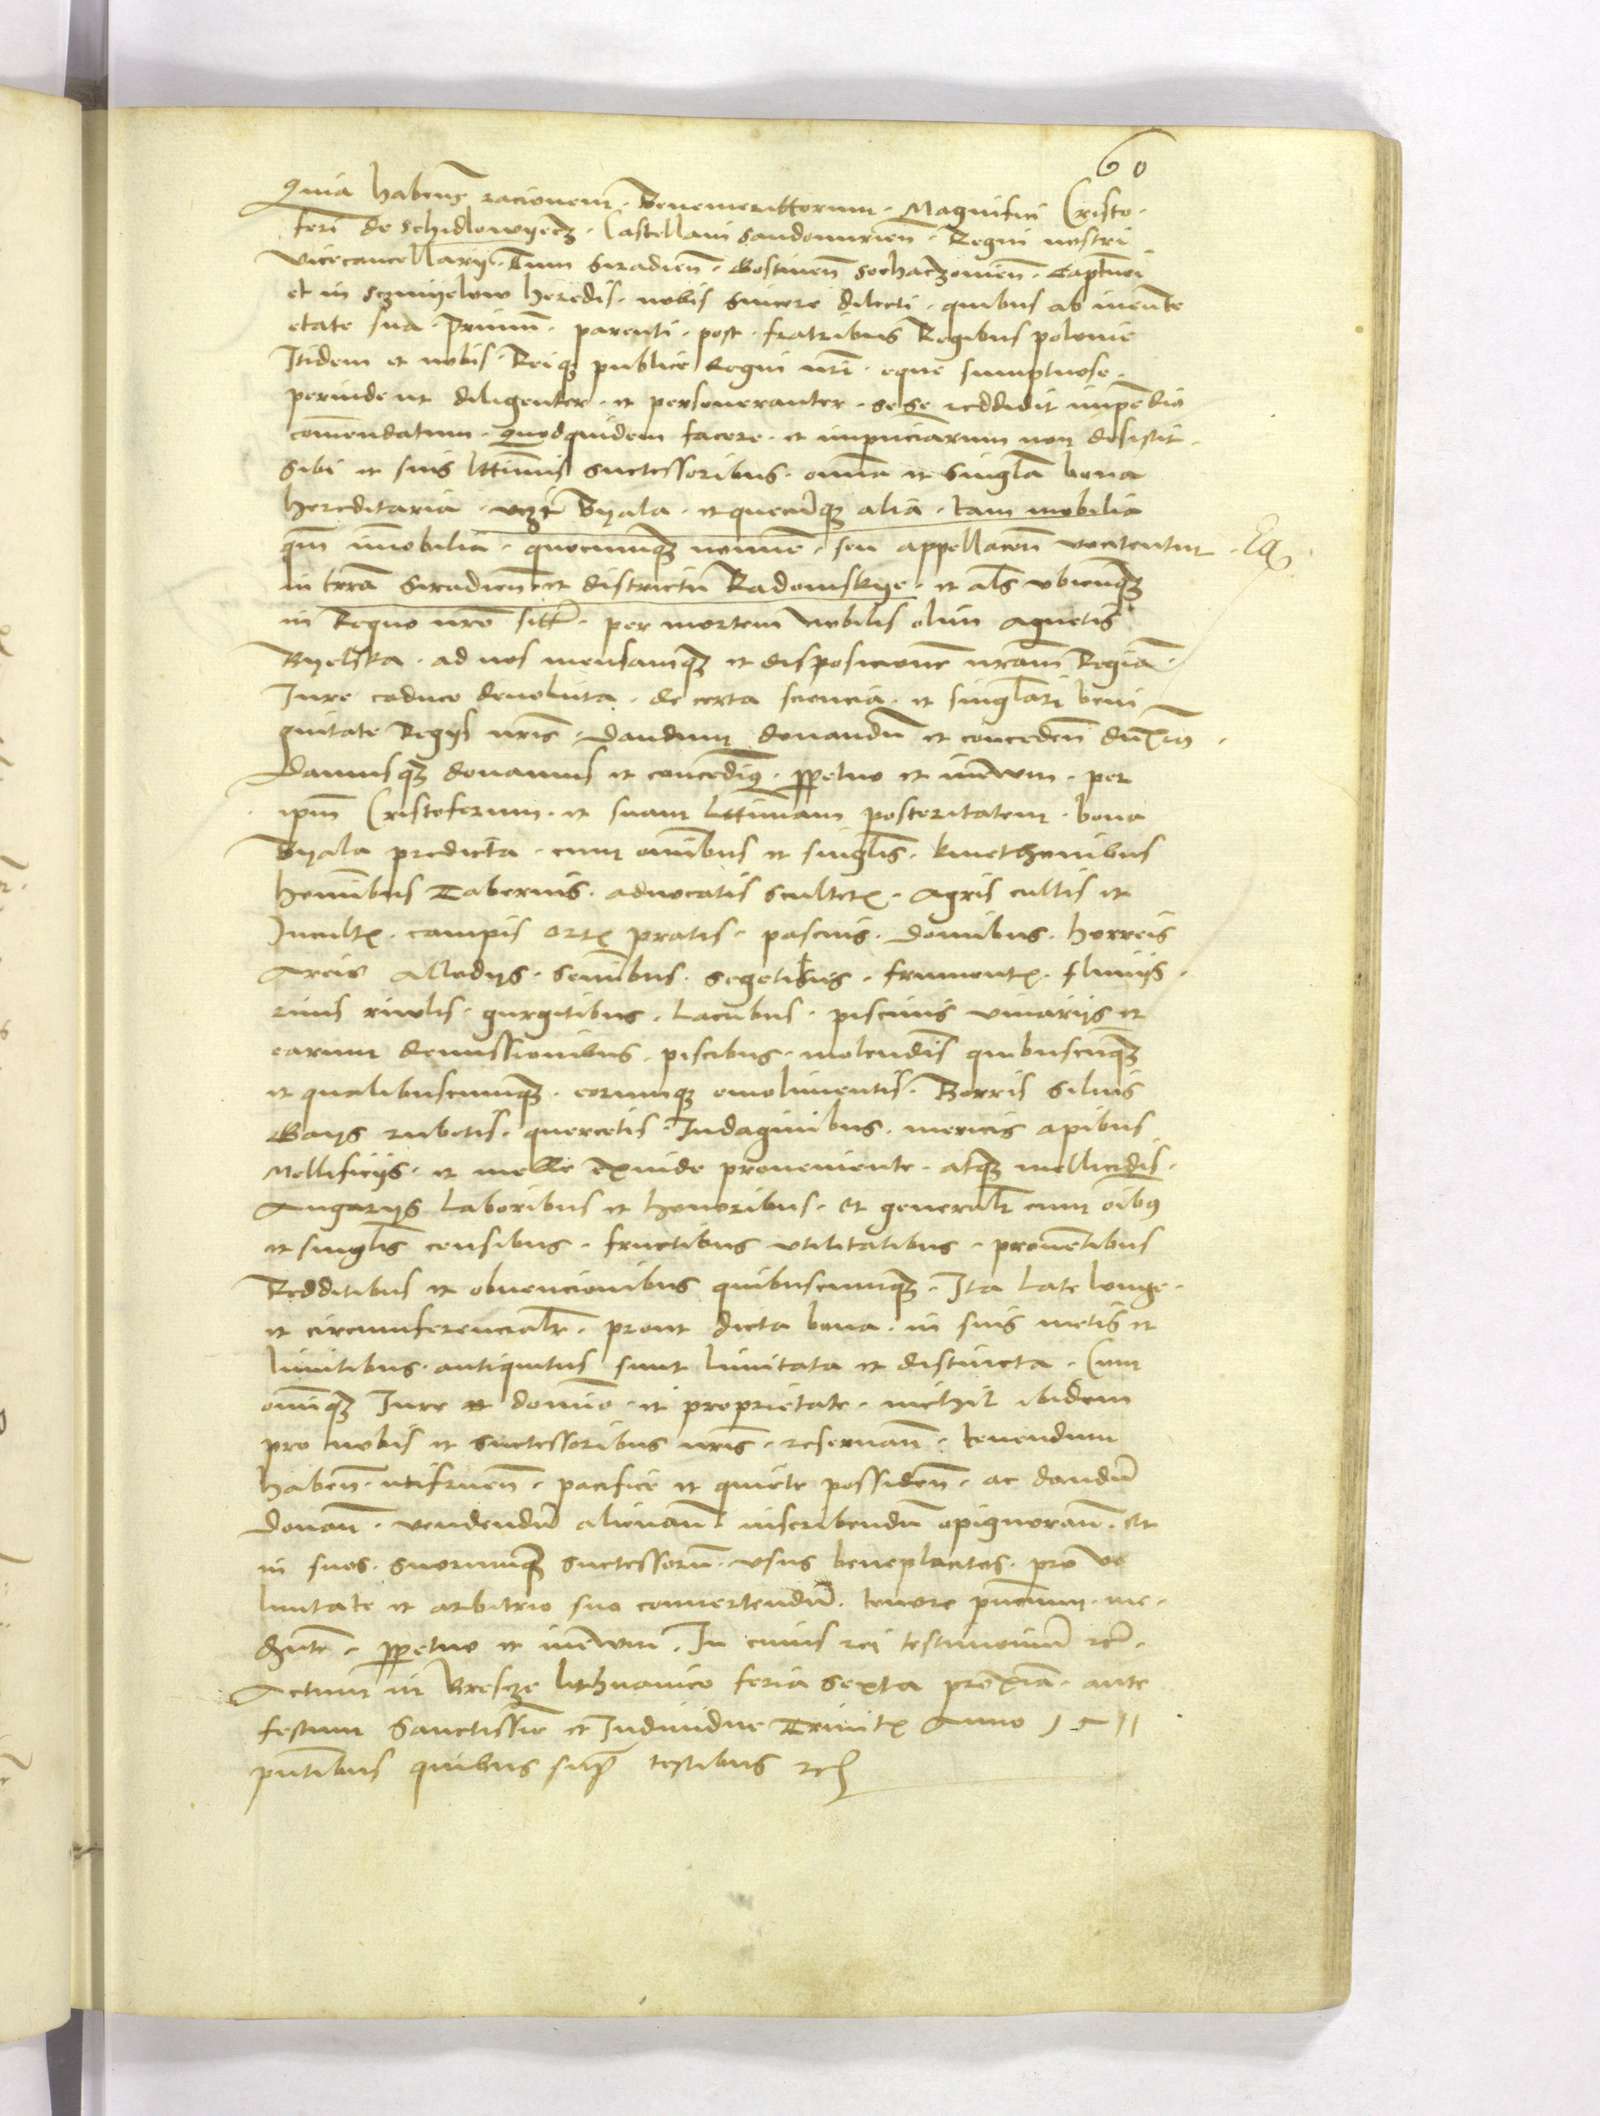 60
Quia habentes racionem Benemerittorum Magnifici Cristo
feri de Schidlowyecz Castellani Sandomirien Regni nostri
Vicecancellarij Tum Siradien Gostinen Sochaczovien Capitanei
et in Sczmyelow heredis nobis sincere dilecti quibus ab ineunte
etate sua primum parenti post fratribus Regibus polonie
Itidem et nobis Reiq publice Regni nri eque sumptuose
perinde ut diligenter et perseveranter sese reddidit impendio
comendatum quodquidem facere et impnciarum non desistit
Sibi et suis lttimis successoribus omnia et singla bona
hereditaria vczt Byala et quecunq alia tam mobilia
qm imobilia quocunq nomine seu appellacoen vocitentur
in terra Siradien et districtu Radomskye et als ubicunq
in Regno nro sitta per mortem Nobilis olim Agnetis
Byelska ad nos mensamq et disposicionem nram Regiam
Jure caduco devoluta de certa sciencia et singlari beni
gnitate Regijs nris dandum donandum et concedend duxim9
Damusq donamus et concedim9 ppetuo et inevum per
ipm Cristoferum et suam lttimam posteritatem bona
Byala predicta cum omibus et singlis kmethonibus
homibus Tabernis advocatis scultet Agris cultis et
Incult campis ort pratis pascuis domibus horreis
Areis Allodijs semibus segetibus frument fluvijs
rivis rivulis gurgitibus lacubus piscinis vivarijs et
earum demissionibus piscibus molendis quibuscunq
et qualibuscunq eorumq emolimentis Borris Silvis
Gays rubetis quercetis Indaginibus mericis apibus
Mellificijs et melle exinde proveniente atq mellicidijs
Angarijs laboribus et honoribus et generalr cum oibus
et singlis censibus fructibus utilitatibus proventibus
Redditibus et obvencionibus quibuscunq Ita late longe
et circumferencialr prout dicta bona in suis metis et
limitibus antiquitus sunt limitata et distincta Cum
omiq Jure et domino et proprietate nichil ibidem
pro nobis et successoribus nris reservan tenendum
haben utifruen pacifice et quiete possiden ac dandum
Donan vendendum alienan inscribendum opignoran et
in suos suorumq successorum usus beneplacitos pro vo
luntate et arbitrio suo convertendum tenore pncium me
diante ppetuo et inevum In cuius rei testimonium etc
Actum in Bresczye lithuanico feria sexta proxima ante
festum Sanctissime et Individue Trinit Anno 1511
pntibus quibus supra testibus etc